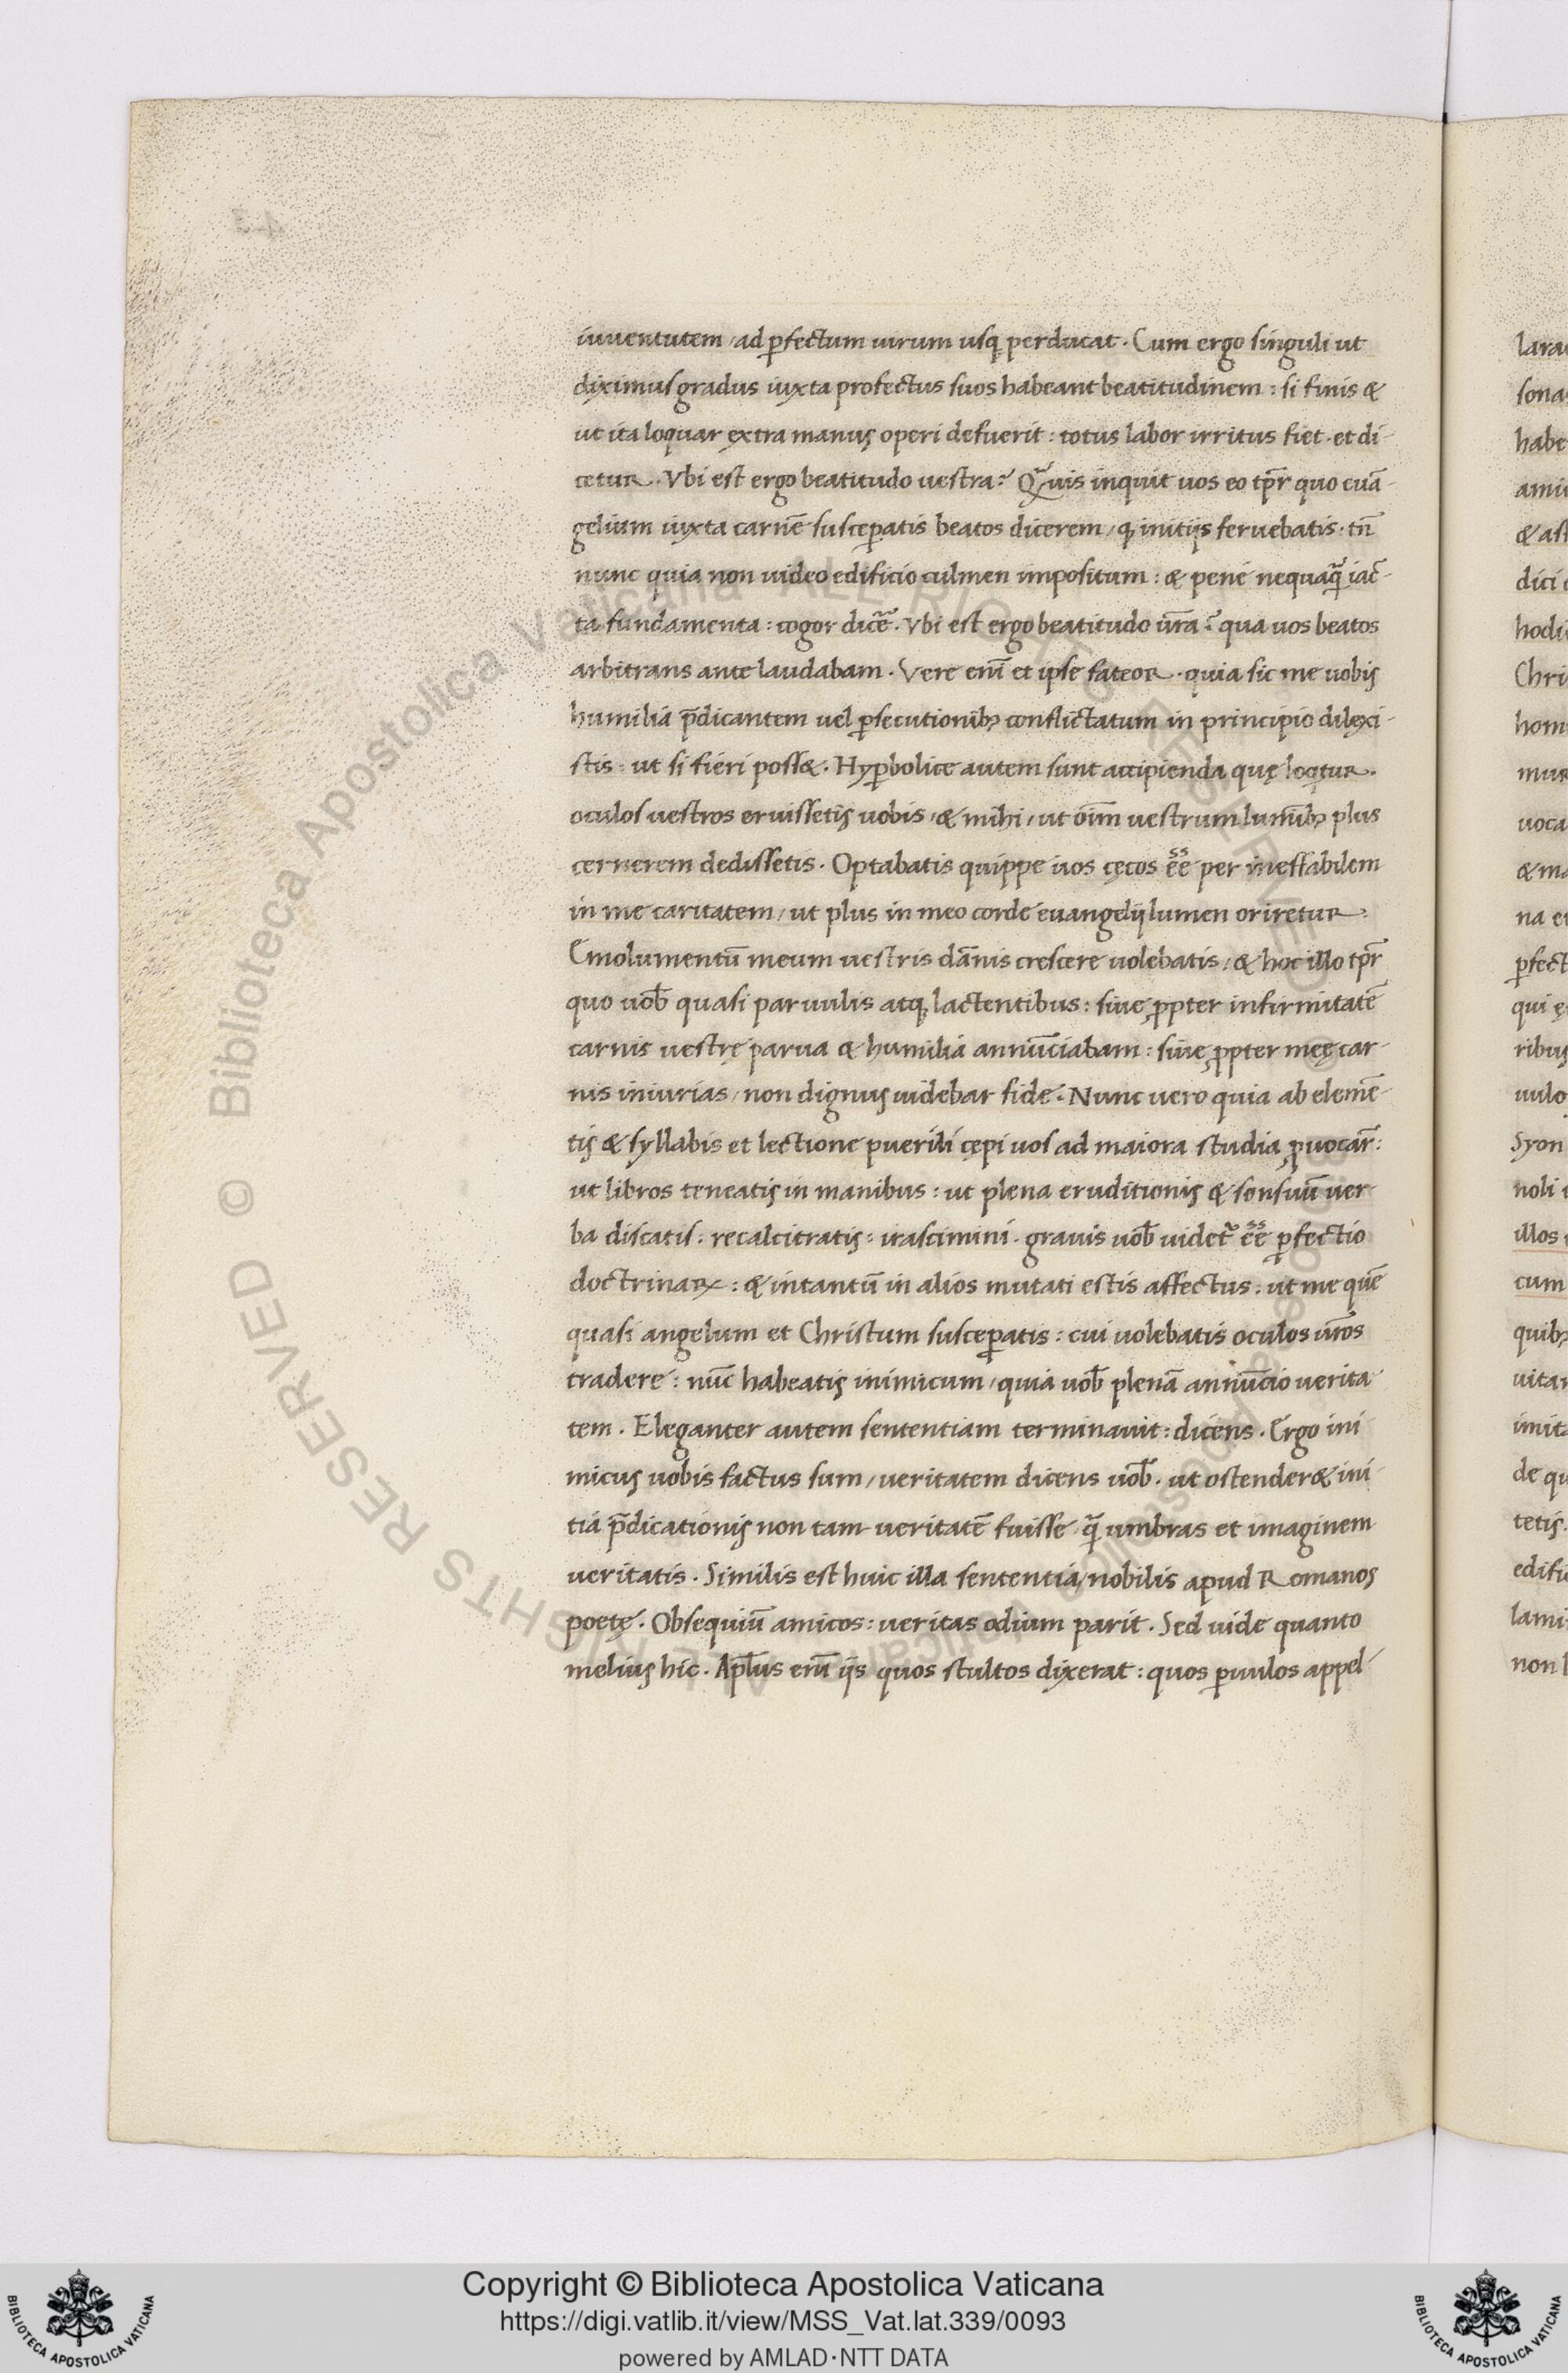 iuuentutem / ad ꝑfectum uirum usqꝫ perducat · Cum ergo singuli ut
diximus gradus iuxta profectus suos habeant beatitudinem : si finis &
ut ita loquar extra manus operi defuerit : totus labor irritus fiet · et di-
cetur · Vbi est ergo beatitudo uestra? Qᷓuis inquit uos eo tp̄r quo euā-
gelium iuxta carnē susceꝑatis beatos dicerem / qꝫ initijs feruebatis · tn̄
nunc quia non uideo edificio culmen impositum : & pene nequaqᷓ iac̄-
ta fundamenta : cogor dicẽ · Vbi est ergo beatitudo ur̄a? qua uos beatos
arbitrans ante laudabam · Vere eni᷈ et ipse fateor · quia sic me uobis
humilia p̄dicantem uel ꝑsecutionibꝫ conflictatum in principio dilexi-
stis : ut si fieri poss& · Hyꝑbolice autem sunt accipienda quę loqtur ·
oculos uestros eruissetis uobis / & mihi / ut oīm uestrum lumībꝫ plus
cernerem dedissetis · Optabatis quippe uos cęcos ēē per ineffabilem
in me caritatem / ut plus in meo corde euangelij lumen oriretur ·
Emolumentū meum uestris dānis crescere uolebatis : & hoc illo tp̄r
quo uob̄ quasi paruulis atqꝫ lactentibus : siue ꝓpter infirmitatē
carnis uestrę parua & humilia annūciabam : siue ꝓpter meę car-
nis iniurias / non dignus uidebar fide · Nunc uero quia ab elemē-
tis & syllabis et lectione puerili cępi uos ad maiora studia ꝓuocar̄ :
ut libros teneatis in manibus : ut plena eruditionis & sensuū uer-
ba discatis : recalcitratis : irascimini · grauis uob̄ uidet᷑ ēē ꝑfectio
doctrinaꝝ : & intantū in alios mutati estis affectus : ut me quē
quasi angelum et Christum susceꝑatis : cui uolebatis oculos ur̄os
tradere : nūc habeatis inimicum / quia uob̄ plenā annūcio uerita-
tem · Eleganter autem sententiam terminauit : dicens · Ergo ini
micus uobis factus sum / ueritatem dicens uob̄ · ut ostender& ini-
tia p̄dicationis non tam ueritatē fuisse qᷓ umbras et imaginem
ueritatis · Similis est huic illa sententia / nobilis apud Romanos
poetę · Obsequiū amicos : ueritas odium parit · Sed uide quanto
melius hic · Apl̄us eni᷈ ijs quos stultos dixerat : quos ꝑuulos appel-
lara
sona
habe
ami
& ass
dici
hodi
Chri
hom
mur
uoca
& ma
na et
ꝑfect
qui ę
ribus
uulo
Syon
noli
illos
cum
quibꝫ
uitar
imita
de qu
tetis
edifi
lami
non
© Biblioteca Apostolica Vaticana ALL RIGHTS RESERVED
Copyright © Biblioteca Apostolica Vaticana
https://digi.vatlib.it/view/MSS_Vat.lat.339/0093
powered by AMLAD·NTT DATA
BIBLIOTECA APOSTOLICA VATICANA
BIBLIOTECA APOSTOLICA VATICANA